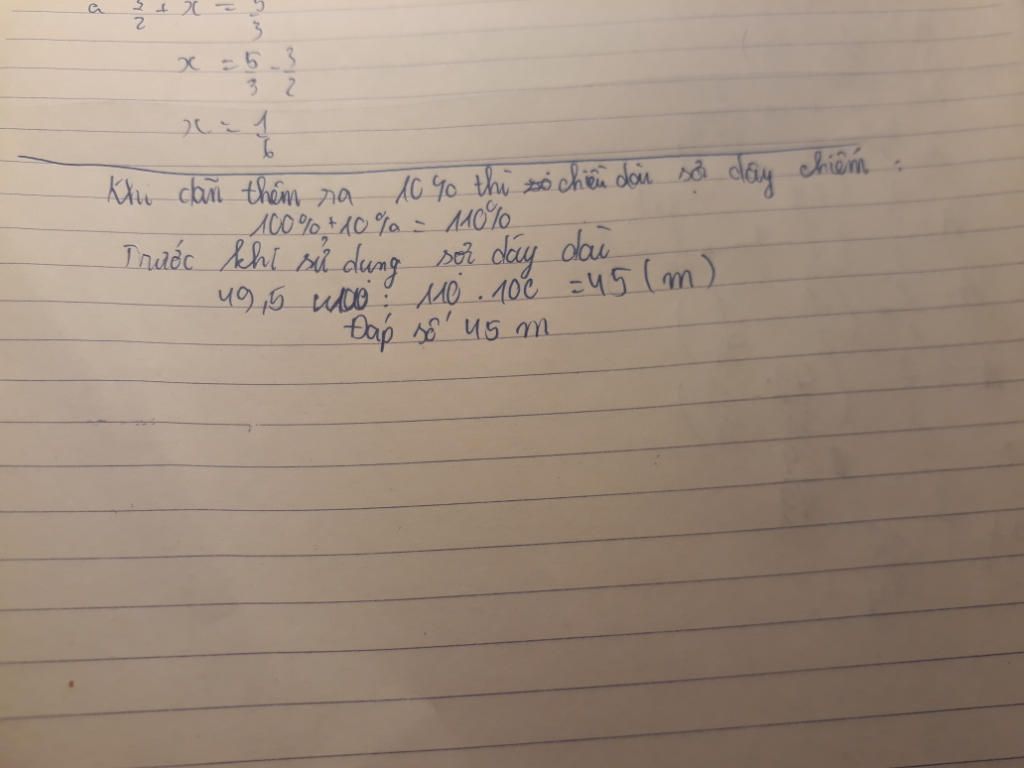 a 3/2 + x = 5/3
x = 5/3 - 3/2
x = 1/6
Khi dãn thêm ra 10% thì chiều dài sợi dây chiếm :
100% + 10% = 110%
Trước khi sử dụng sợi dây dài
49,5 : 110 . 100 = 45 (m)
Đáp số 45 m